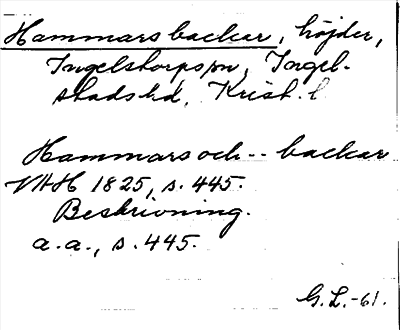 Hammars backar, höjder,
Ingelstorps sn, Ingel-
stads hd, Krist. l
Hammars och -- backar
VAH 1825, s. 445.
Beskrivning.
a.a., s. 445.
G. L. -61.